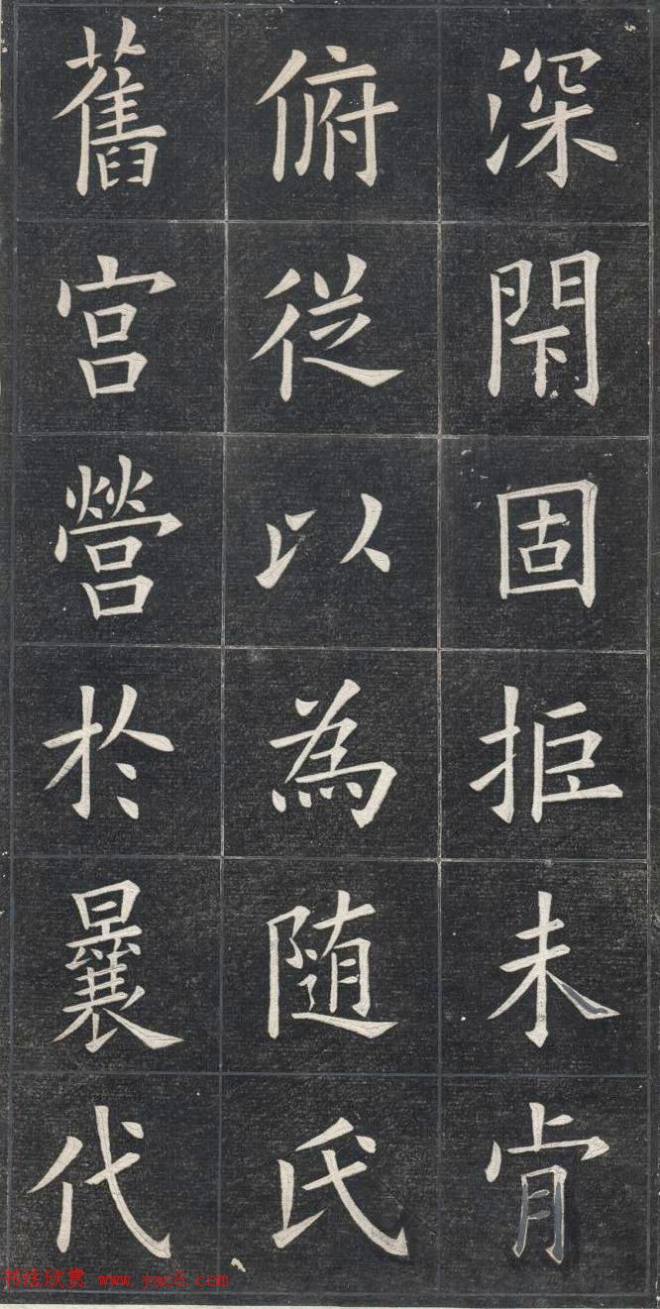 深閇固拒未肯
俯從以為随氏
舊宮營於曩代
书法欣赏 www.yac8.com